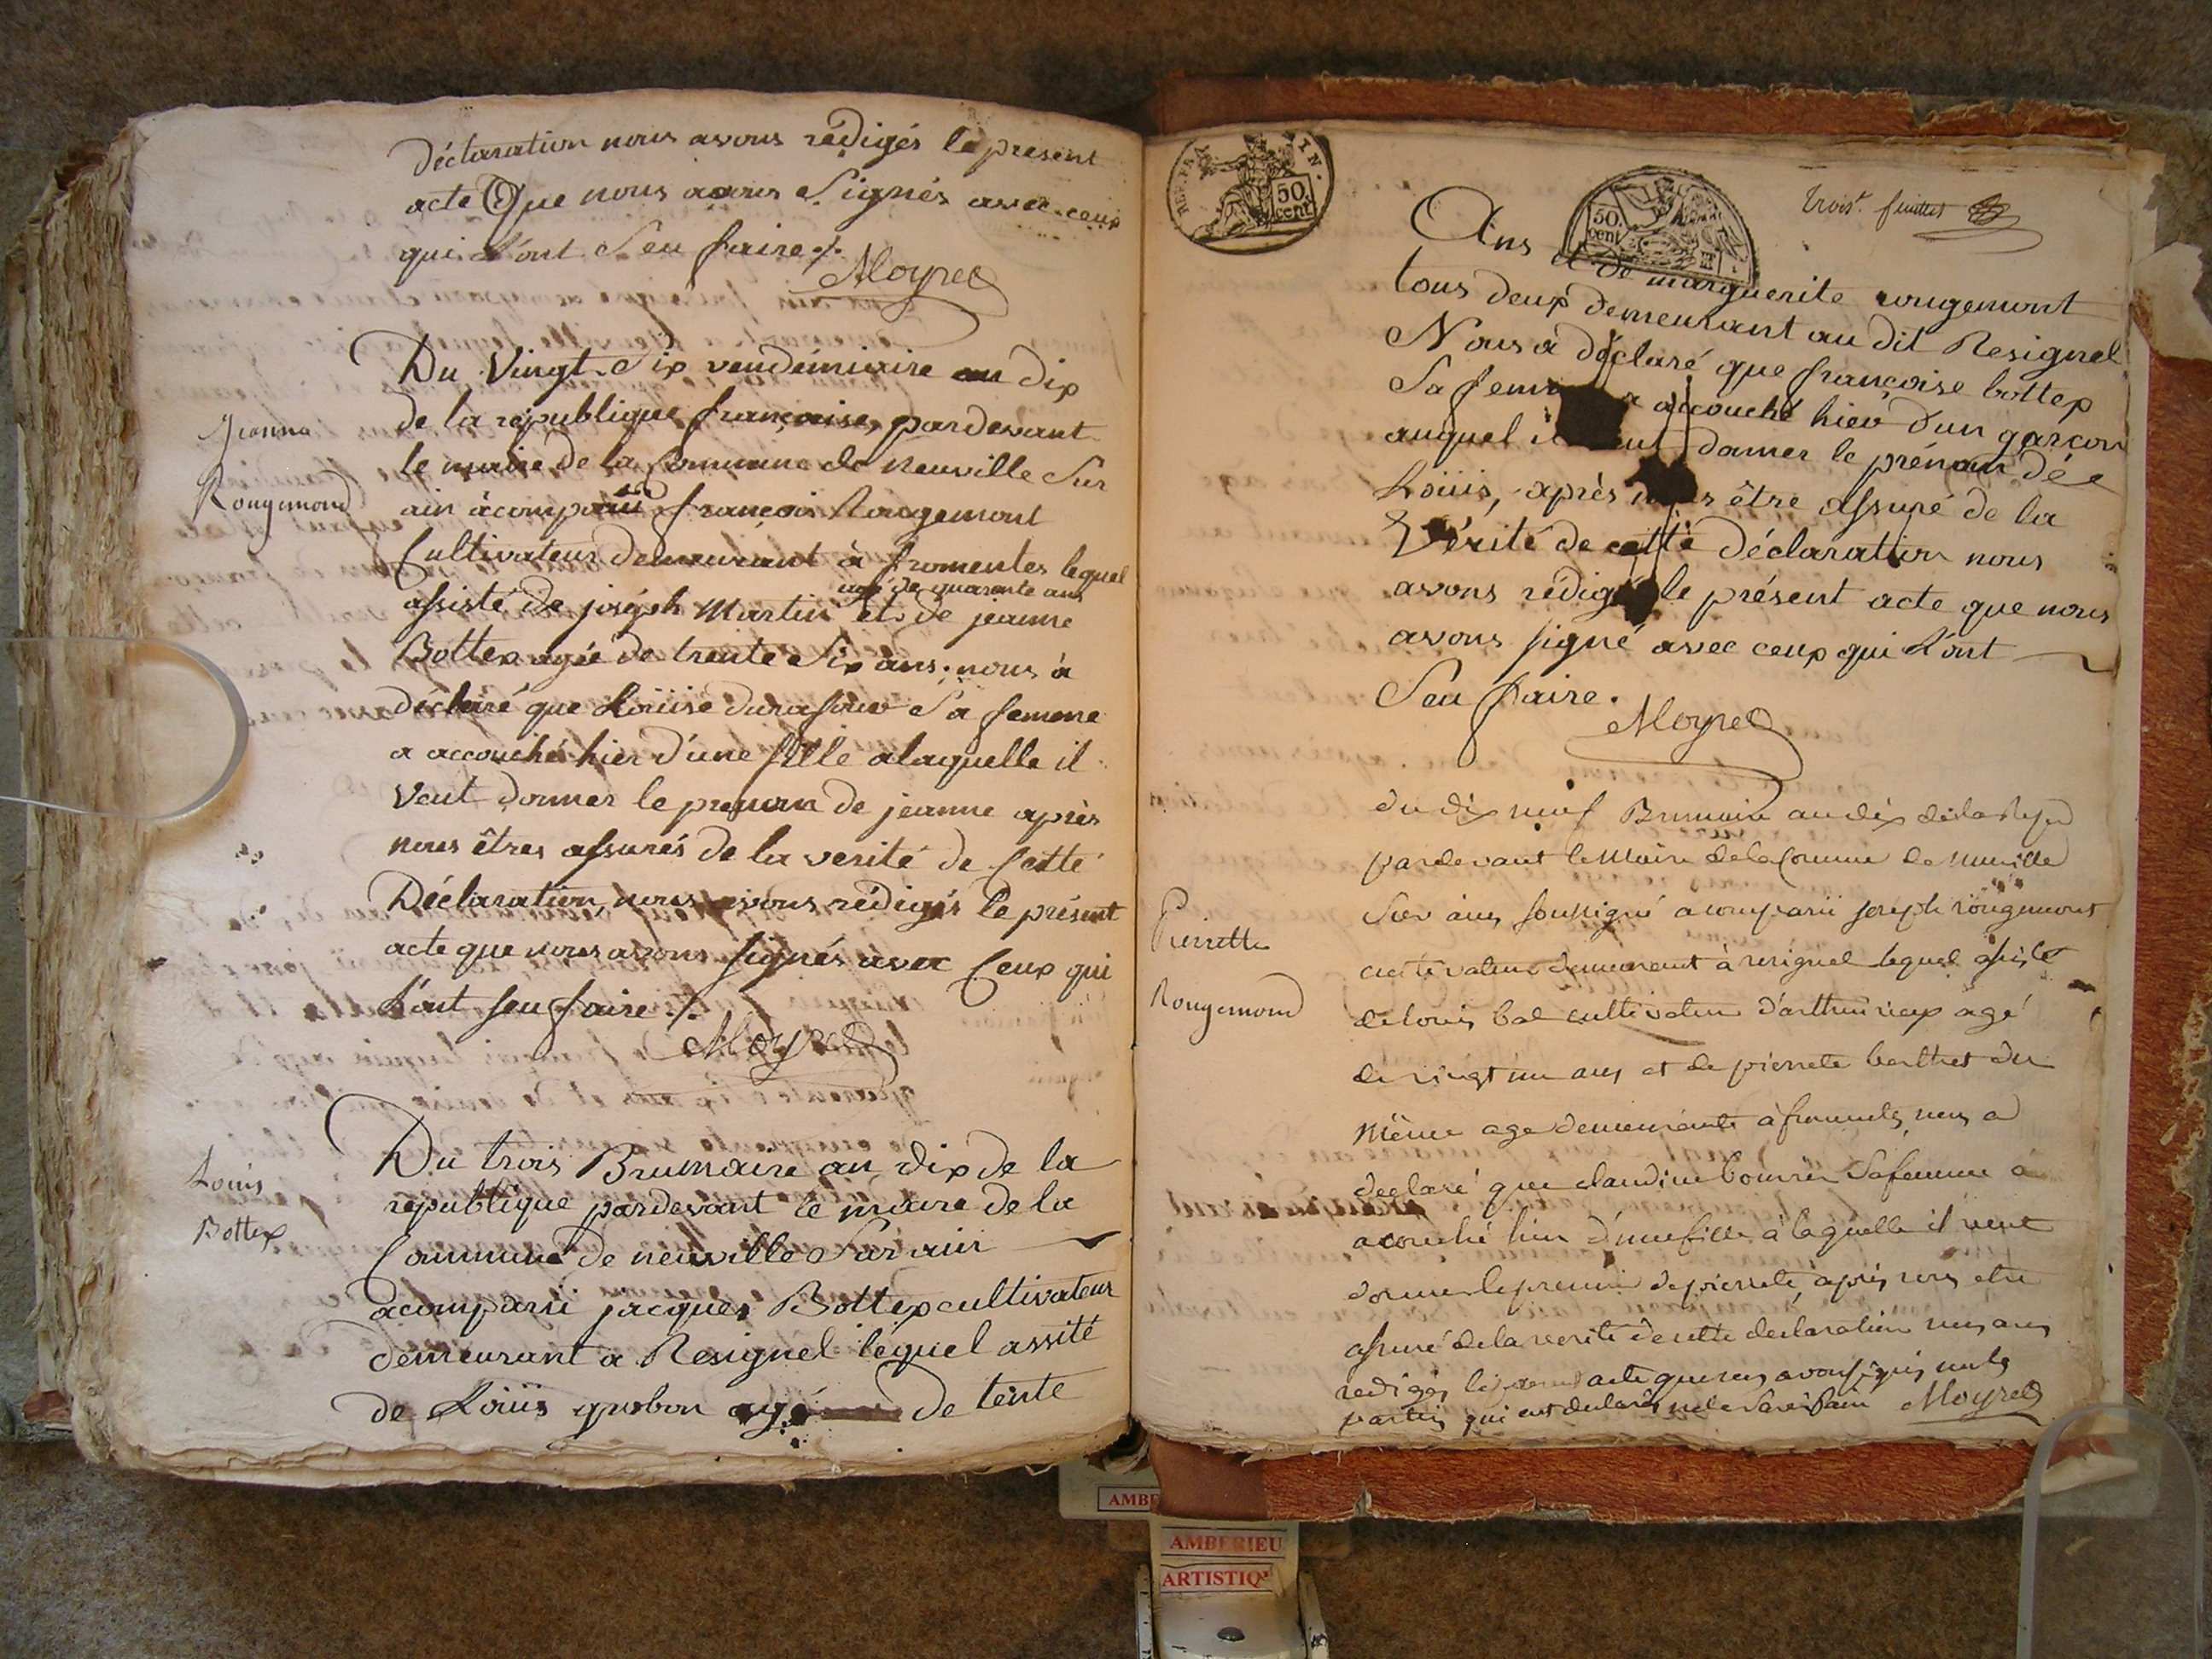 déclaration nous avons rédigés le present
acte Que nous avons Signés avec ceux
qui L'ont Seu faire /.
Moyret
Du Vingt-Six vendémiaire an dix
de la république française, pardevant
Jeanne
Rougemond
le maire de la Commune de neuville Sur
ain àcomparü françois Rougemont
Cultivateur demeurant à fromentes lequel
agé de quarante ans
assisté de joséph Martin et de jeanne
Bottex agée de trente Six ans, nous à
déclaré que Louïise Sa femme
a accouché hier d'une fille alaquelle il
veut donner le prenom de jeanne après
nous êtres assurés de la verité de Cette
Déclaration, nous avons rédigés le présent
acte que nous avons signés avec Ceux qui
L'ont seu faire /.
Moyret
Du trois Brumaire an dix de la
Louis
Bottex
république pardevant le maire de la
Commune de neuville Sur ain
àcomparü jacques Bottex cultivateur
demeurant a Resignel léquel assité
de Loüis grobon agé de tente
REP. FRA
50 cent
50 cent
trois.t feuillet
Ans et de marguerite rougemont
tous deux demeurant au dit Resignel
Nous a déclaré que françoise bottex
Sa a accouché hier d'un garçon
auquel donner le prénom dée
Loüis, après être assuré de la
Vérité de cette déclaration nous
avons rédigé le présent acte que nous
avons signé avec ceux qui L'ont
Seu faire.
Moyret
du dix neuf Brumaire an dix de la Rep
pardevant le Maire de la Comune de neuville
Pierrette
Rougemond
Sur ain, soussigné acomparü joseph rougemont
cultivateur demeurant à resignel lequel assisté
de louis bal cultivateur d'arthurieux agé
de vingt un ans et de pierrete berthet du
même age demeurante à fromente, nous a
declaré que claudine bourier Sa femme a
acouché hier d'une fille à laquelle il veut
donner le prenom de pierrete, après nous etre
assuré de la verité de cette declaration nous avons
rediges le present acte que nous avons signés
parties qui ont declaré ne le Savoir faire Moyret
AMBE
AMBERIEU
ARTISTIQ